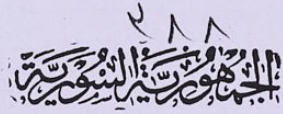 ٣٨٨
الجُمْهُوْرِيَّة السُّوْرِيَّة